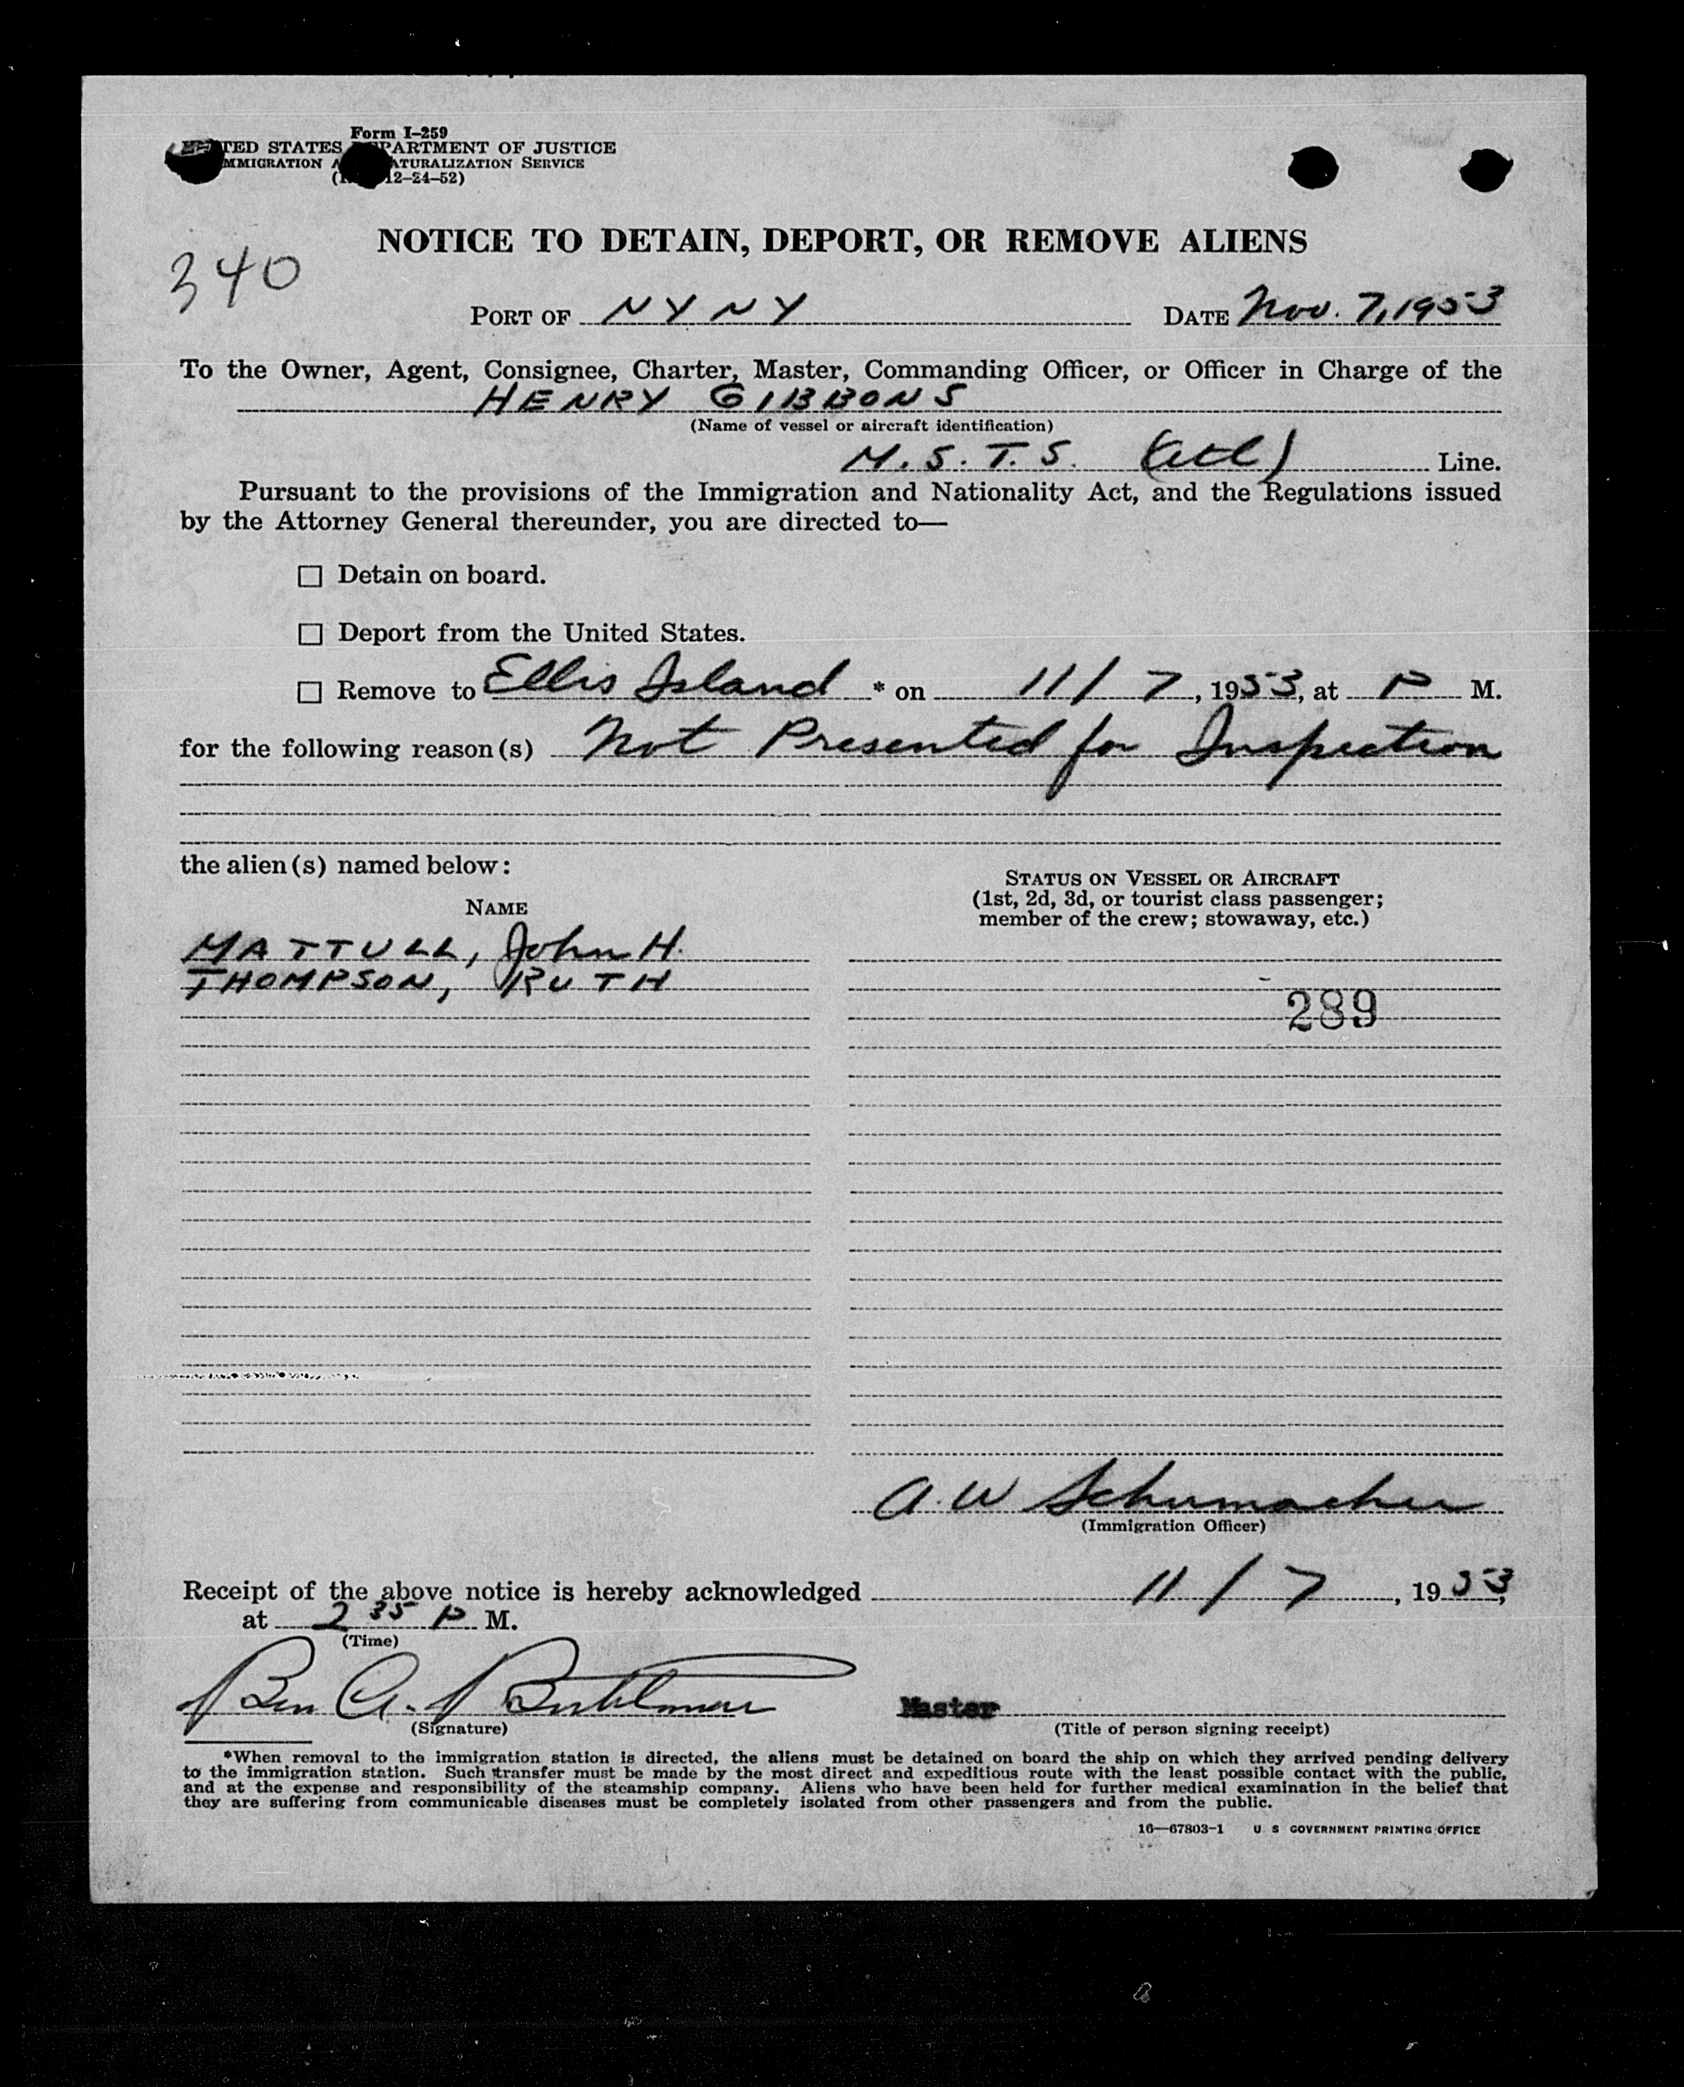 Form I-259
TED STATES PARTMENT OF JUSTICE
MMIGRATION A ATURALIZATION SERVICE
12-24-52)
NOTICE TO DETAIN, DEPORT, OR REMOVE ALIENS
340
PORT OF NYNY DATE Nov. 7, 1953
To the Owner, Agent, Consignee, Charter, Master, Commanding Officer, or Officer in Charge of the
HENRY GIBBONS
(Name of vessel or aircraft identification)
M.S.T.S. (Atl) Line.
Pursuant to the provisions of the Immigration and Nationality Act, and the Regulations issued
by the Attorney General thereunder, you are directed to—
☐ Detain on board.
☐ Deport from the United States.
☐ Remove to Ellis Island * on 11/7, 1953, at P M.
for the following reason(s) Not Presented for Inspection
the alien(s) named below:
STATUS ON VESSEL OR AIRCRAFT
(1st, 2d, 3d, or tourist class passenger;
member of the crew; stowaway, etc.)
NAME
MATTULL, John H.
THOMPSON, RUTH
289
A. W Schumacher
(Immigration Officer)
Receipt of the above notice is hereby acknowledged 11/7, 1953,
at 2 35 P M.
(Time)
Ben A.
Master
(Signature) (Title of person signing receipt)
*When removal to the immigration station is directed, the aliens must be detained on board the ship on which they arrived pending delivery
to the immigration station. Such transfer must be made by the most direct and expeditious route with the least possible contact with the public,
and at the expense and responsibility of the steamship company. Aliens who have been held for further medical examination in the belief that
they are suffering from communicable diseases must be completely isolated from other passengers and from the public.
16—67803-1 U S GOVERNMENT PRINTING OFFICE